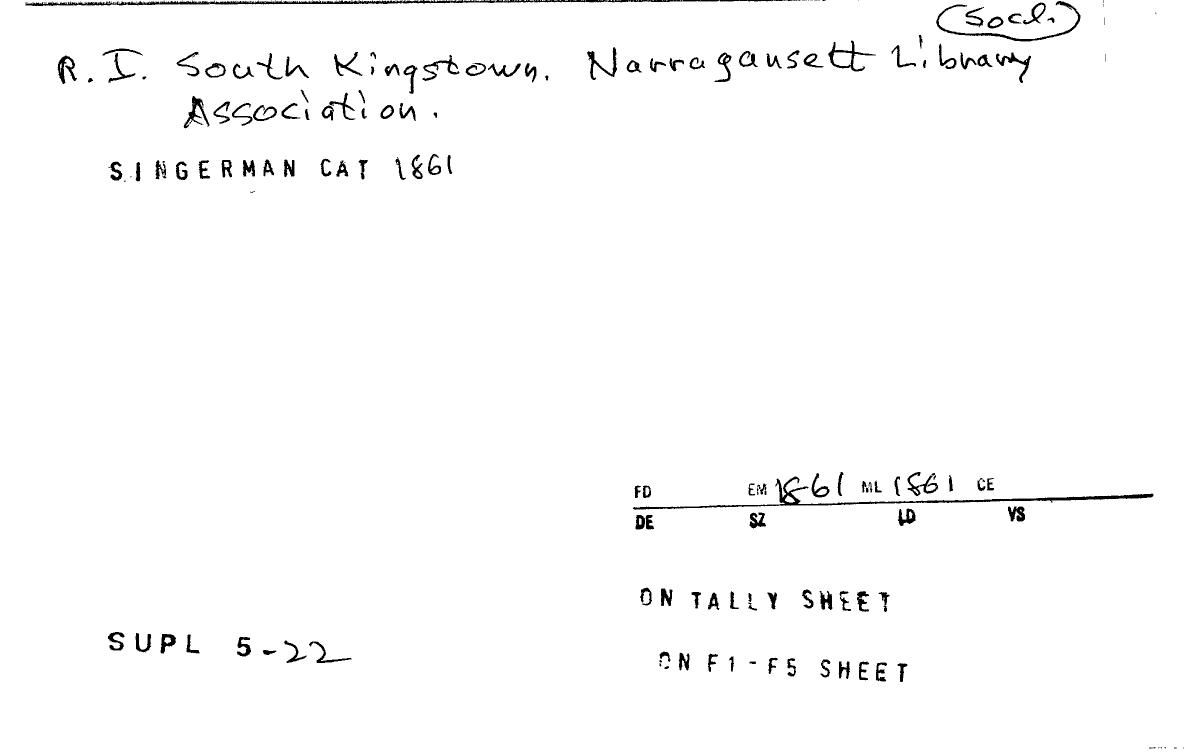 (Socl.)
R. I. South Kingstown. Narragansett Library
Association.
SINGERMAN CAT 1861
FD EM 1861 ML 1861 CE
DE SZ LD VS
ON TALLY SHEET
SUPL 5-22
ON F1-F5 SHEET